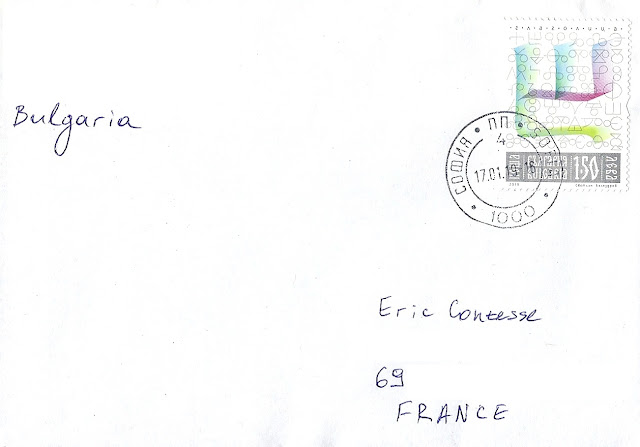 Bulgaria
СОФИЯ • ПП •
4
17.01.19-16
1000
БЪЛГАРИЯ
BULGARIA
150
лева
2018
Eric Contesse
69
FRANCE